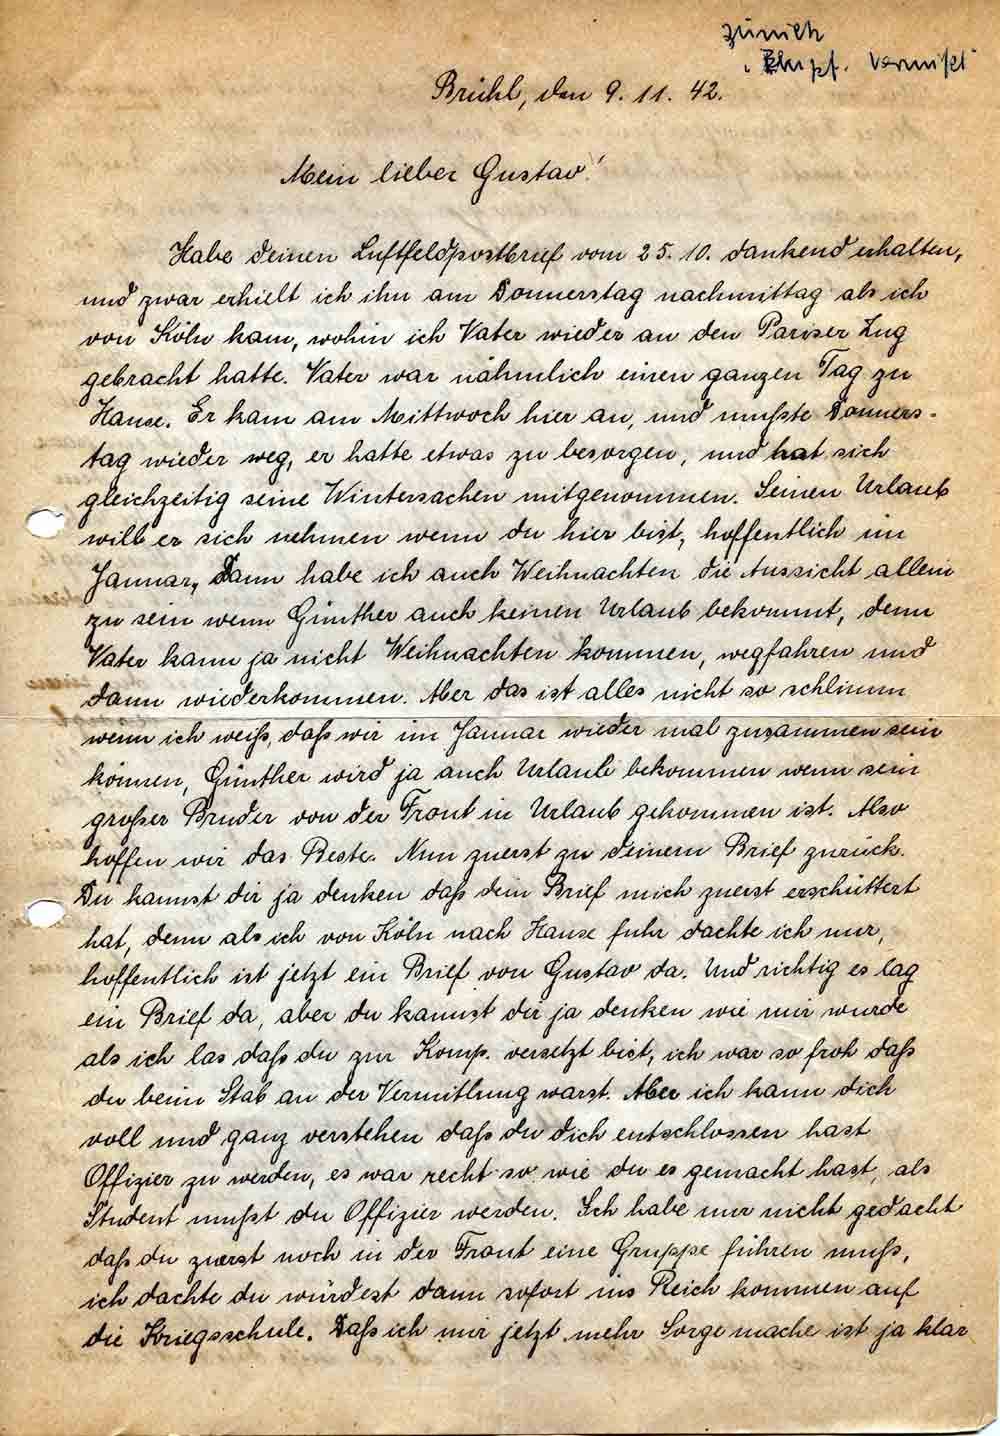 zurück
vermißt
Brühl, den 9. 11. 42.
Mein lieber Gustav!
Habe deinen Luftfeldpostbrief vom 25. 10. dankend erhalten,
und zwar erhielt ich ihn am Donnerstag nachmittag als ich
von Köln kam, wohin ich Vater wieder an den Pariser Zug
gebracht hatte. Vater war nähmlich einen ganzen Tag zu
Hause. Er kam am Mittwoch hier an, und mußte Donners-
tag wieder weg, er hatte etwas zu besorgen, und hat sich
gleichzeitig seine Wintersachen mitgenommen. Seinen Urlaub
will er sich nehmen wenn du hier bist, hoffentlich im
Januar, Dann habe ich auch Weihnachten die Aussicht allein
zu sein wenn Günther auch keinen Urlaub bekommt, denn
Vater kann ja nicht Weihnachten kommen, wegfahren und
dann wiederkommen. Aber das ist alles nicht so schlimm
wenn ich weiß, daß wir im Januar wieder mal zusammen sein
können, Günther wird ja auch Urlaub bekommen wenn sein
großer Bruder von der Front in Urlaub gekommen ist. Also
hoffen wir das Beste. Nun zuerst zu deinem Brief zurück.
Du kannst dir ja denken daß dein Brief mich zuerst erschüttert
hat, denn als ich von Köln nach Hause fuhr dachte ich nur,
hoffentlich ist jetzt ein Brief von Gustav da. Und richtig es lag
ein Brief da, aber du kannst dir ja denken wie mir wurde
als ich las daß du zur Komp. versetzt bist, ich war so froh daß
du beim Stab an der Vermittlung warst. Aber ich kann dich
voll und ganz verstehen daß du dich entschlossen hast
Offizier zu werden, es war recht so wie du es gemacht hast, als
Student mußt du Offizier werden. Ich habe nur nicht gedacht
daß du zuerst noch in der Front eine Gruppe führen muß,
ich dachte du würdest dann sofort ins Reich kommen auf
die Kriegsschule. Daß ich mir jetzt mehr Sorge mache ist ja klar